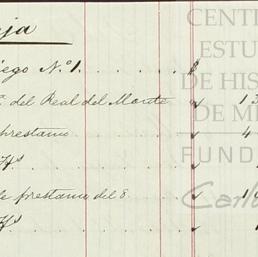 ja
iego Nº 1. $
del Real del Monte " 13
prestamo " 4
Hs "
le prestamo del 8. " 1
Hs "
CENT
ESTU
DE HIS
DE M
FUND
Carlo